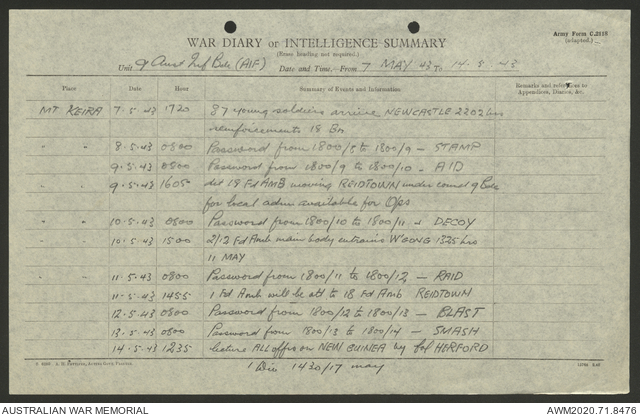 Army Form C.2118
(adapted.)
WAR DIARY or INTELLIGENCE SUMMARY
(Erase heading not required.)
Unit 9 Aust Inf Bde (AIF) Date and Time, From 7 MAY 43 To 14.5.43
Place Date Hour Summary of Events and Information Remarks and references to Appendices, Diaries, &c.
MT KEIRA 7.5.43 1720 87 young soldiers arrive NEWCASTLE 2202 hrs
reinforcements 18 Bn
" " 8.5.43 0800 Password from 1800/8 to 1800/9 - STAMP
" " 9.5.43 0800 Password from 1800/9 to 1800/10 - AID
" " 9.5.43 1605 det 18 Fd AMB moving REIDTOWN under comd 9 Bde
for local adm available for Ops
" " 10.5.43 0800 Password from 1800/10 to 1800/11 - DECOY
" " 10.5.43 1500 2/12 Fd Amb main body entrains W'GONG 1325 hrs
11 MAY
" " 11.5.43 0800 Password from 1800/11 to 1800/12 - RAID
" " 11.5.43 1455 1 Fd Amb will be att to 18 Fd Amb REIDTOWN
" " 12.5.43 0800 Password from 1800/12 to 1800/13 - BLAST
" " 13.5.43 0800 Password from 1800/13 to 1800/14 - SMASH
" " 14.5.43 1235 lecture ALL offrs on NEW GUINEA by Col HERFORD
1 Div 1430/17 may
AUSTRALIAN WAR MEMORIAL AWM2020.71.8476